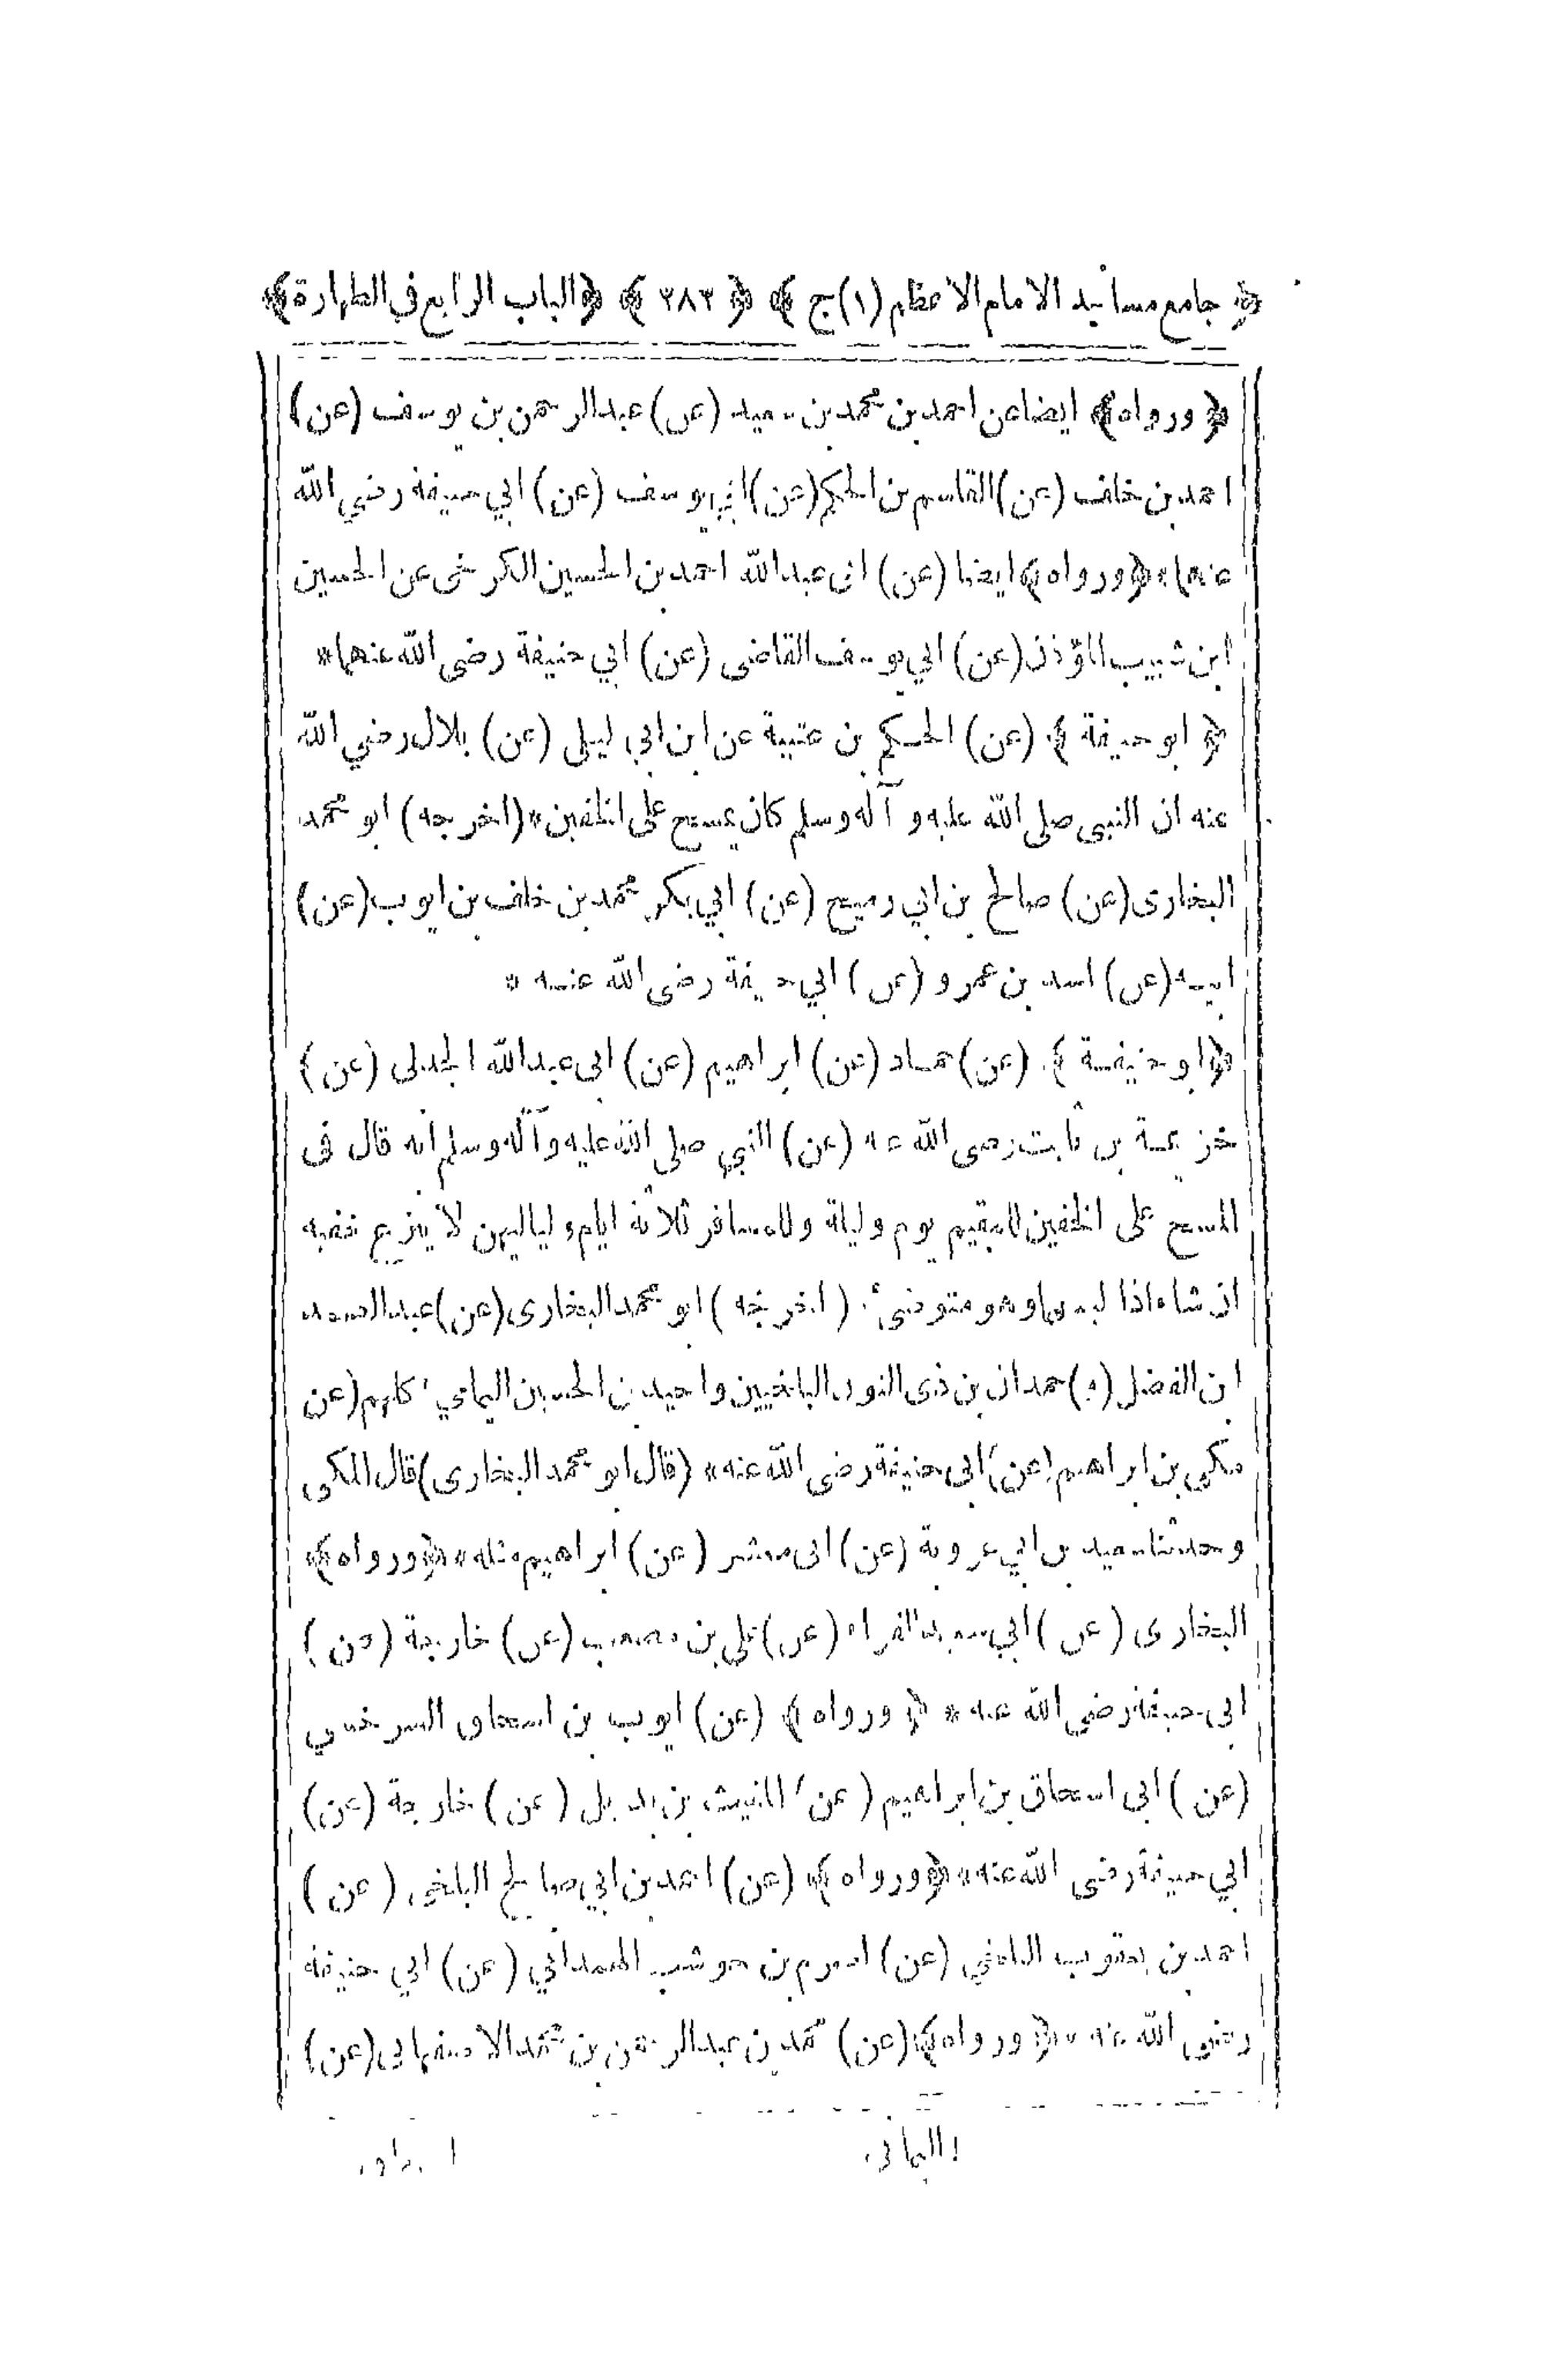 ﴿ جامع مسانيد الامام الاعظم (١) ج ﴾ ﴿ ٣٨٣ ﴾ ﴿ الباب الرابع في الطهارة ﴾
﴿ ورواه ﴾ ايضا عن احمد بن محمد بن سعيد (عن) عبد الرحمن بن يوسف (عن)
احمد بن خلف (عن) القاسم بن الحكم (عن) ابي يوسف (عن) ابي حنيفة رضي الله
عنهما * ﴿ ورواه ﴾ ايضا (عن) ابى عبد الله احمد بن الحسين الكرخى عن الحسين
ابن شبيب المؤذن (عن) ابي يوسف القاضى (عن) ابي حنيفة رضى الله عنهما *
﴿ ابو حنيفة ﴾ (عن) الحكم بن عتيبة عن ابن ابي ليلى (عن) بلال رضي الله
عنه ان النبى صلى الله عليه وآله وسلم كان يمسح على الخفين * (اخرجه) ابو محمد
البخارى (عن) صالح بن ابي رميح (عن) ابي بكر محمد بن خلف بن ايوب (عن)
ابيه (عن) اسد بن عمرو (عن) ابي حنيفة رضى الله عنه *
﴿ ابو حنيفة ﴾ (عن) حماد (عن) ابراهيم (عن) ابى عبد الله الجدلى (عن)
خزيمة بن ثابت رضى الله عنه (عن) النبي صلى الله عليه وآله وسلم انه قال فى
المسح على الخفين للمقيم يوم وليلة وللمسافر ثلاثة ايام ولياليهن لا ينزع خفيه
ان شاء اذا لبسهما وهو متوضئ * (اخرجه) ابو محمد البخارى (عن) عبد الصمد
ابن الفضل (و) حمدان بن ذى النون البلخيين واحيد بن الحسين اليمامي ١ كلهم (عن
مكي بن ابراهيم (عن) ابى حنيفة رضى الله عنه * (قال ابو محمد البخارى) قال المكى
وحدثنا سعيد بن ابي عروبة (عن) ابى معشر (عن) ابراهيم مثله * ﴿ ورواه ﴾
البخارى (عن) ابي سعيد الفراء (عن) علي بن مصعب (عن) خارجة (عن)
ابى حنيفة رضي الله عنه * ﴿ ورواه ﴾ (عن) ايوب بن اسحاق السرخسي
(عن) ابى اسحاق بن ابراهيم (عن) المغيث بن بديل (عن) خارجة (عن)
ابي حنيفة رضى الله عنه * ﴿ ورواه ﴾ (عن) احمد بن ابي صالح البلخى (عن)
احمد بن يعقوب البلخي (عن) اصرم بن حوشب الهمداني (عن) ابي حنيفة
رضى الله عنه * ﴿ ورواه ﴾ (عن) محمد بن عبد الرحمن بن محمد الاصفهانى (عن)